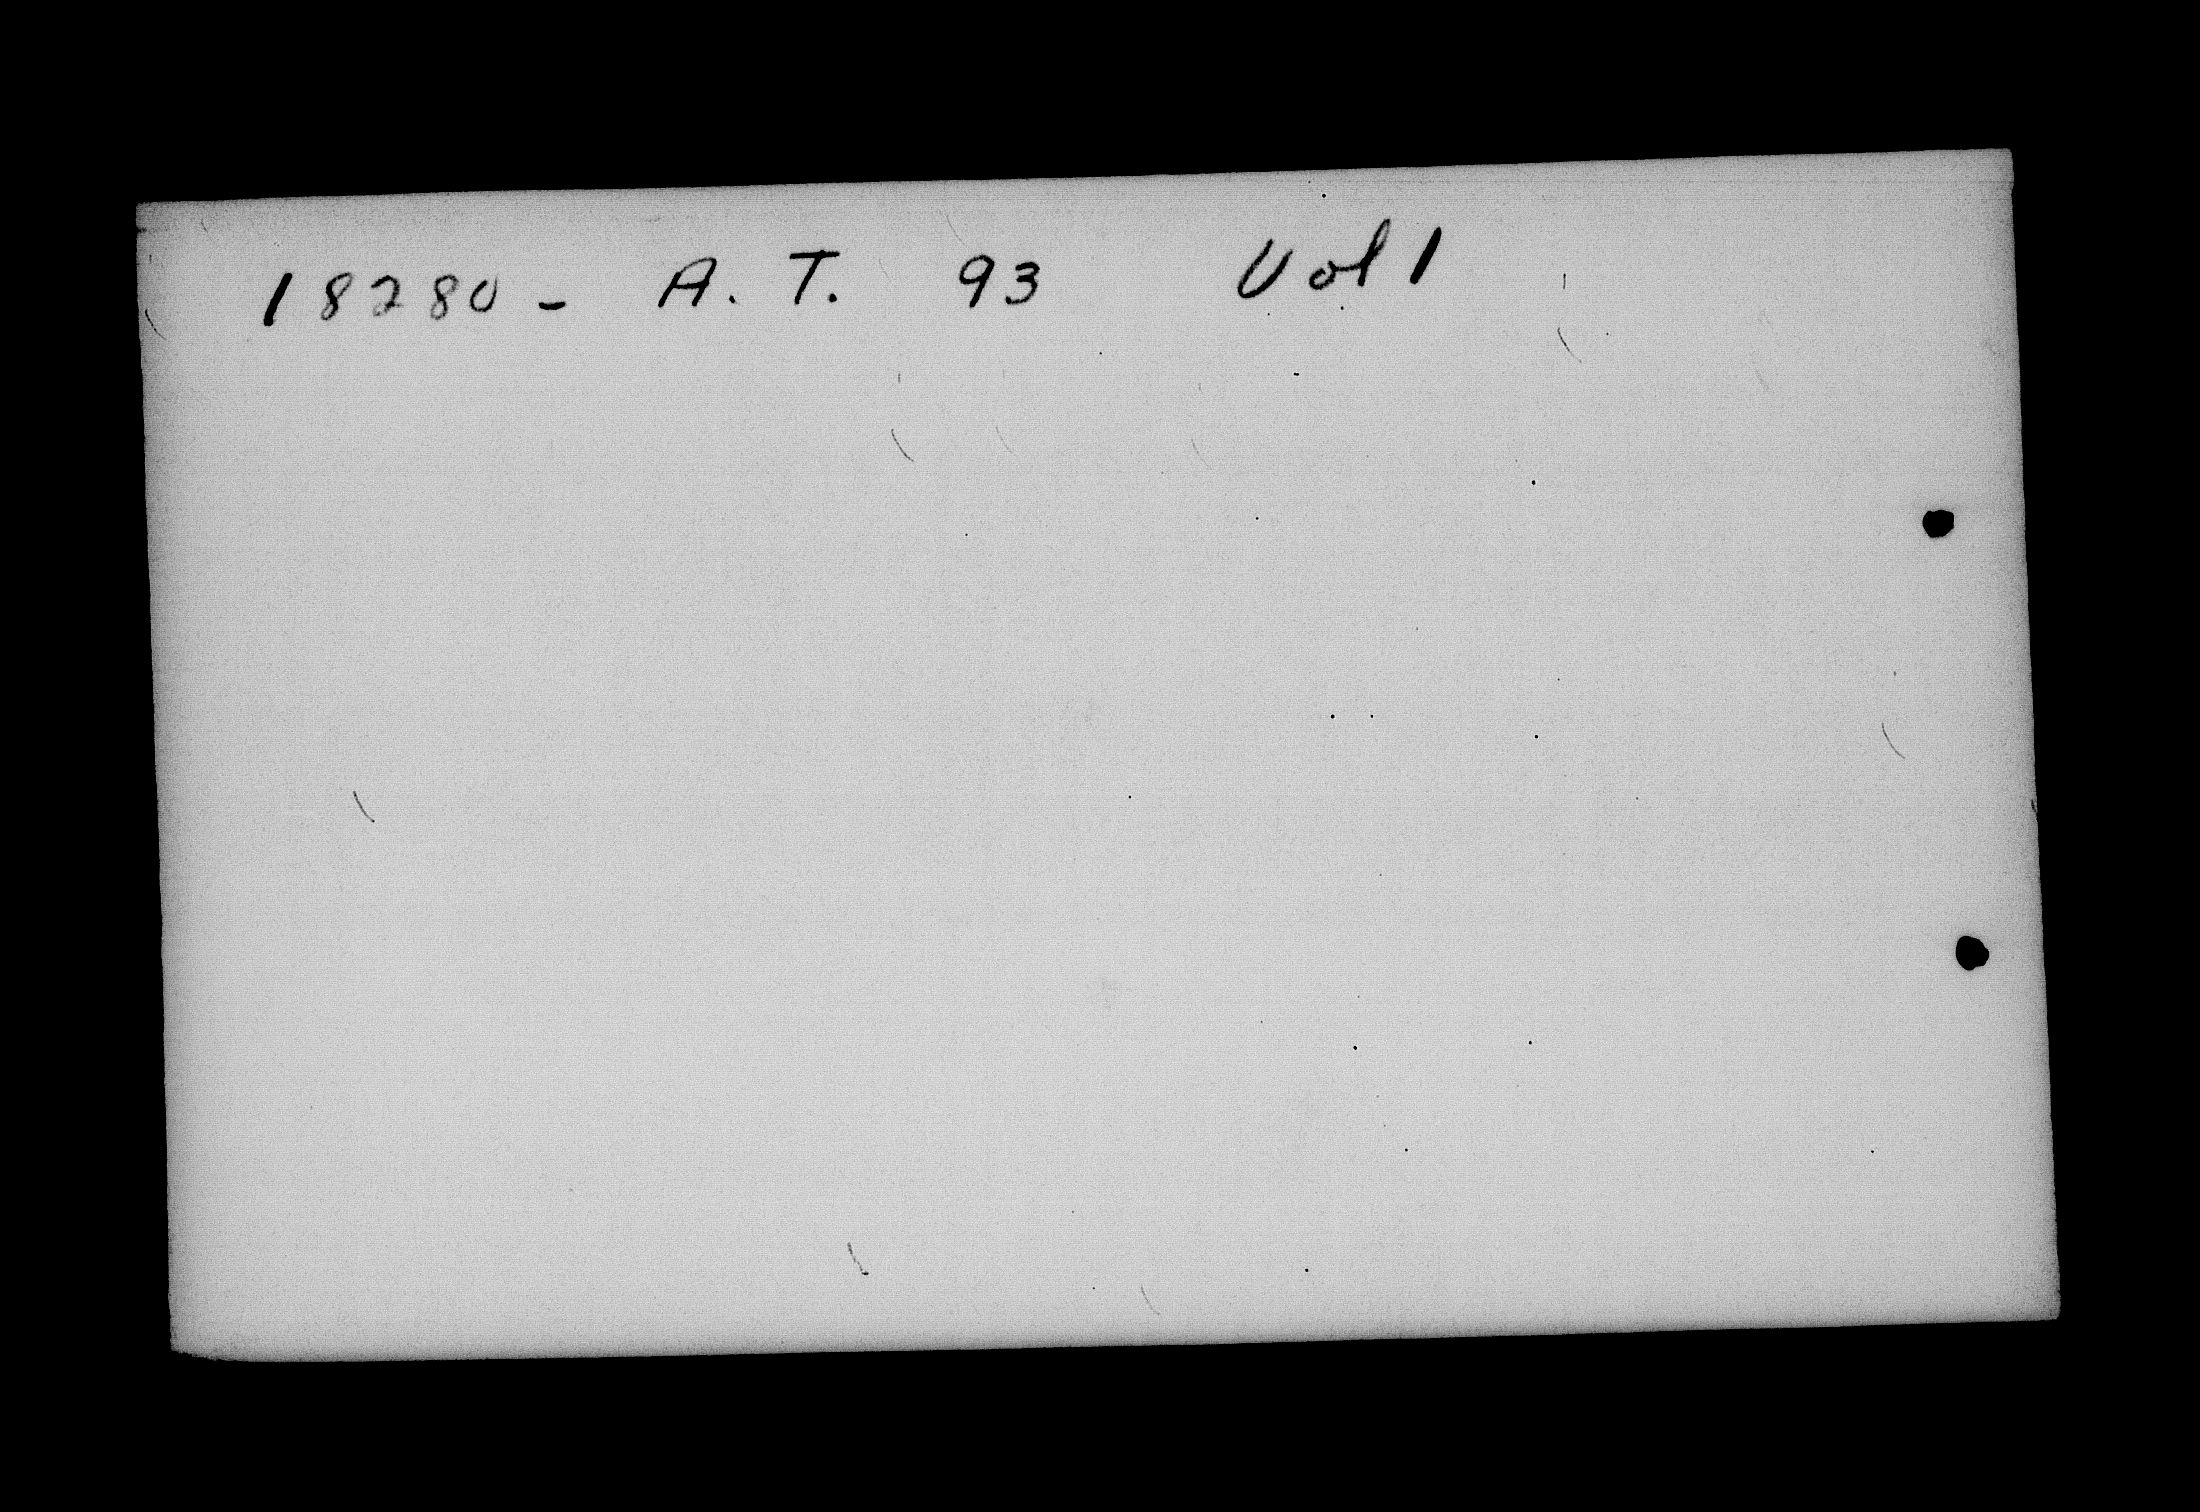 18280 - A. T. 93 Vol 1